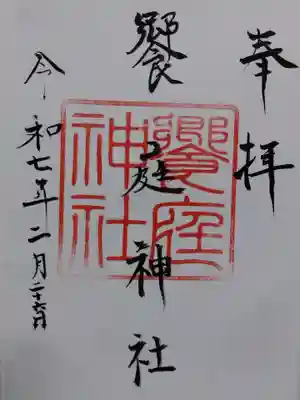 奉拝
饗庭神社
饗庭
神社
令和七年二月二十六日